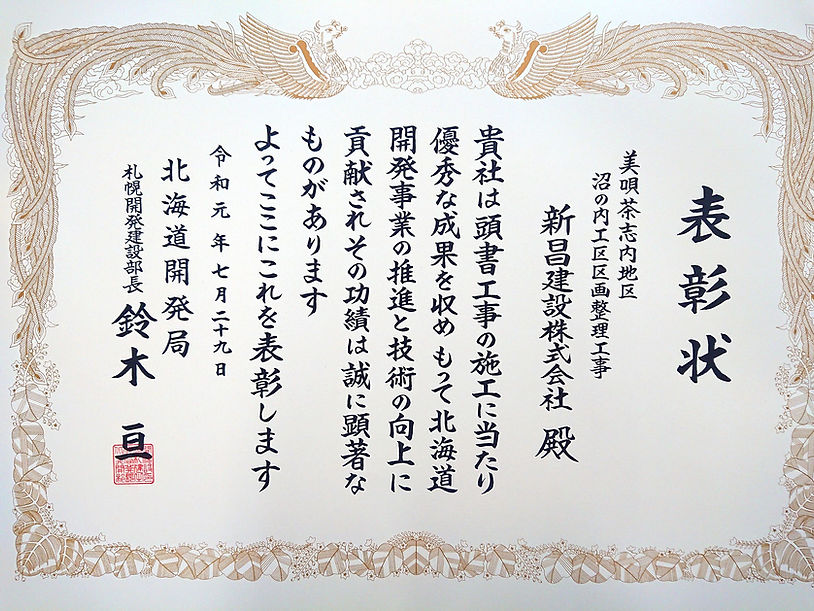 表彰状
美唄茶志内地区
沼の内工区区画整理工事
新昌建設株式会社 殿
貴社は頭書工事の施工に当たり
優秀な成果を収め もって北海道
開発事業の推進と技術の向上に
貢献されその功績は誠に顕著な
ものがあります
よってここにこれを表彰します
令和元年七月二十九日
北海道開発局
札幌開発建設部長 鈴木 亘